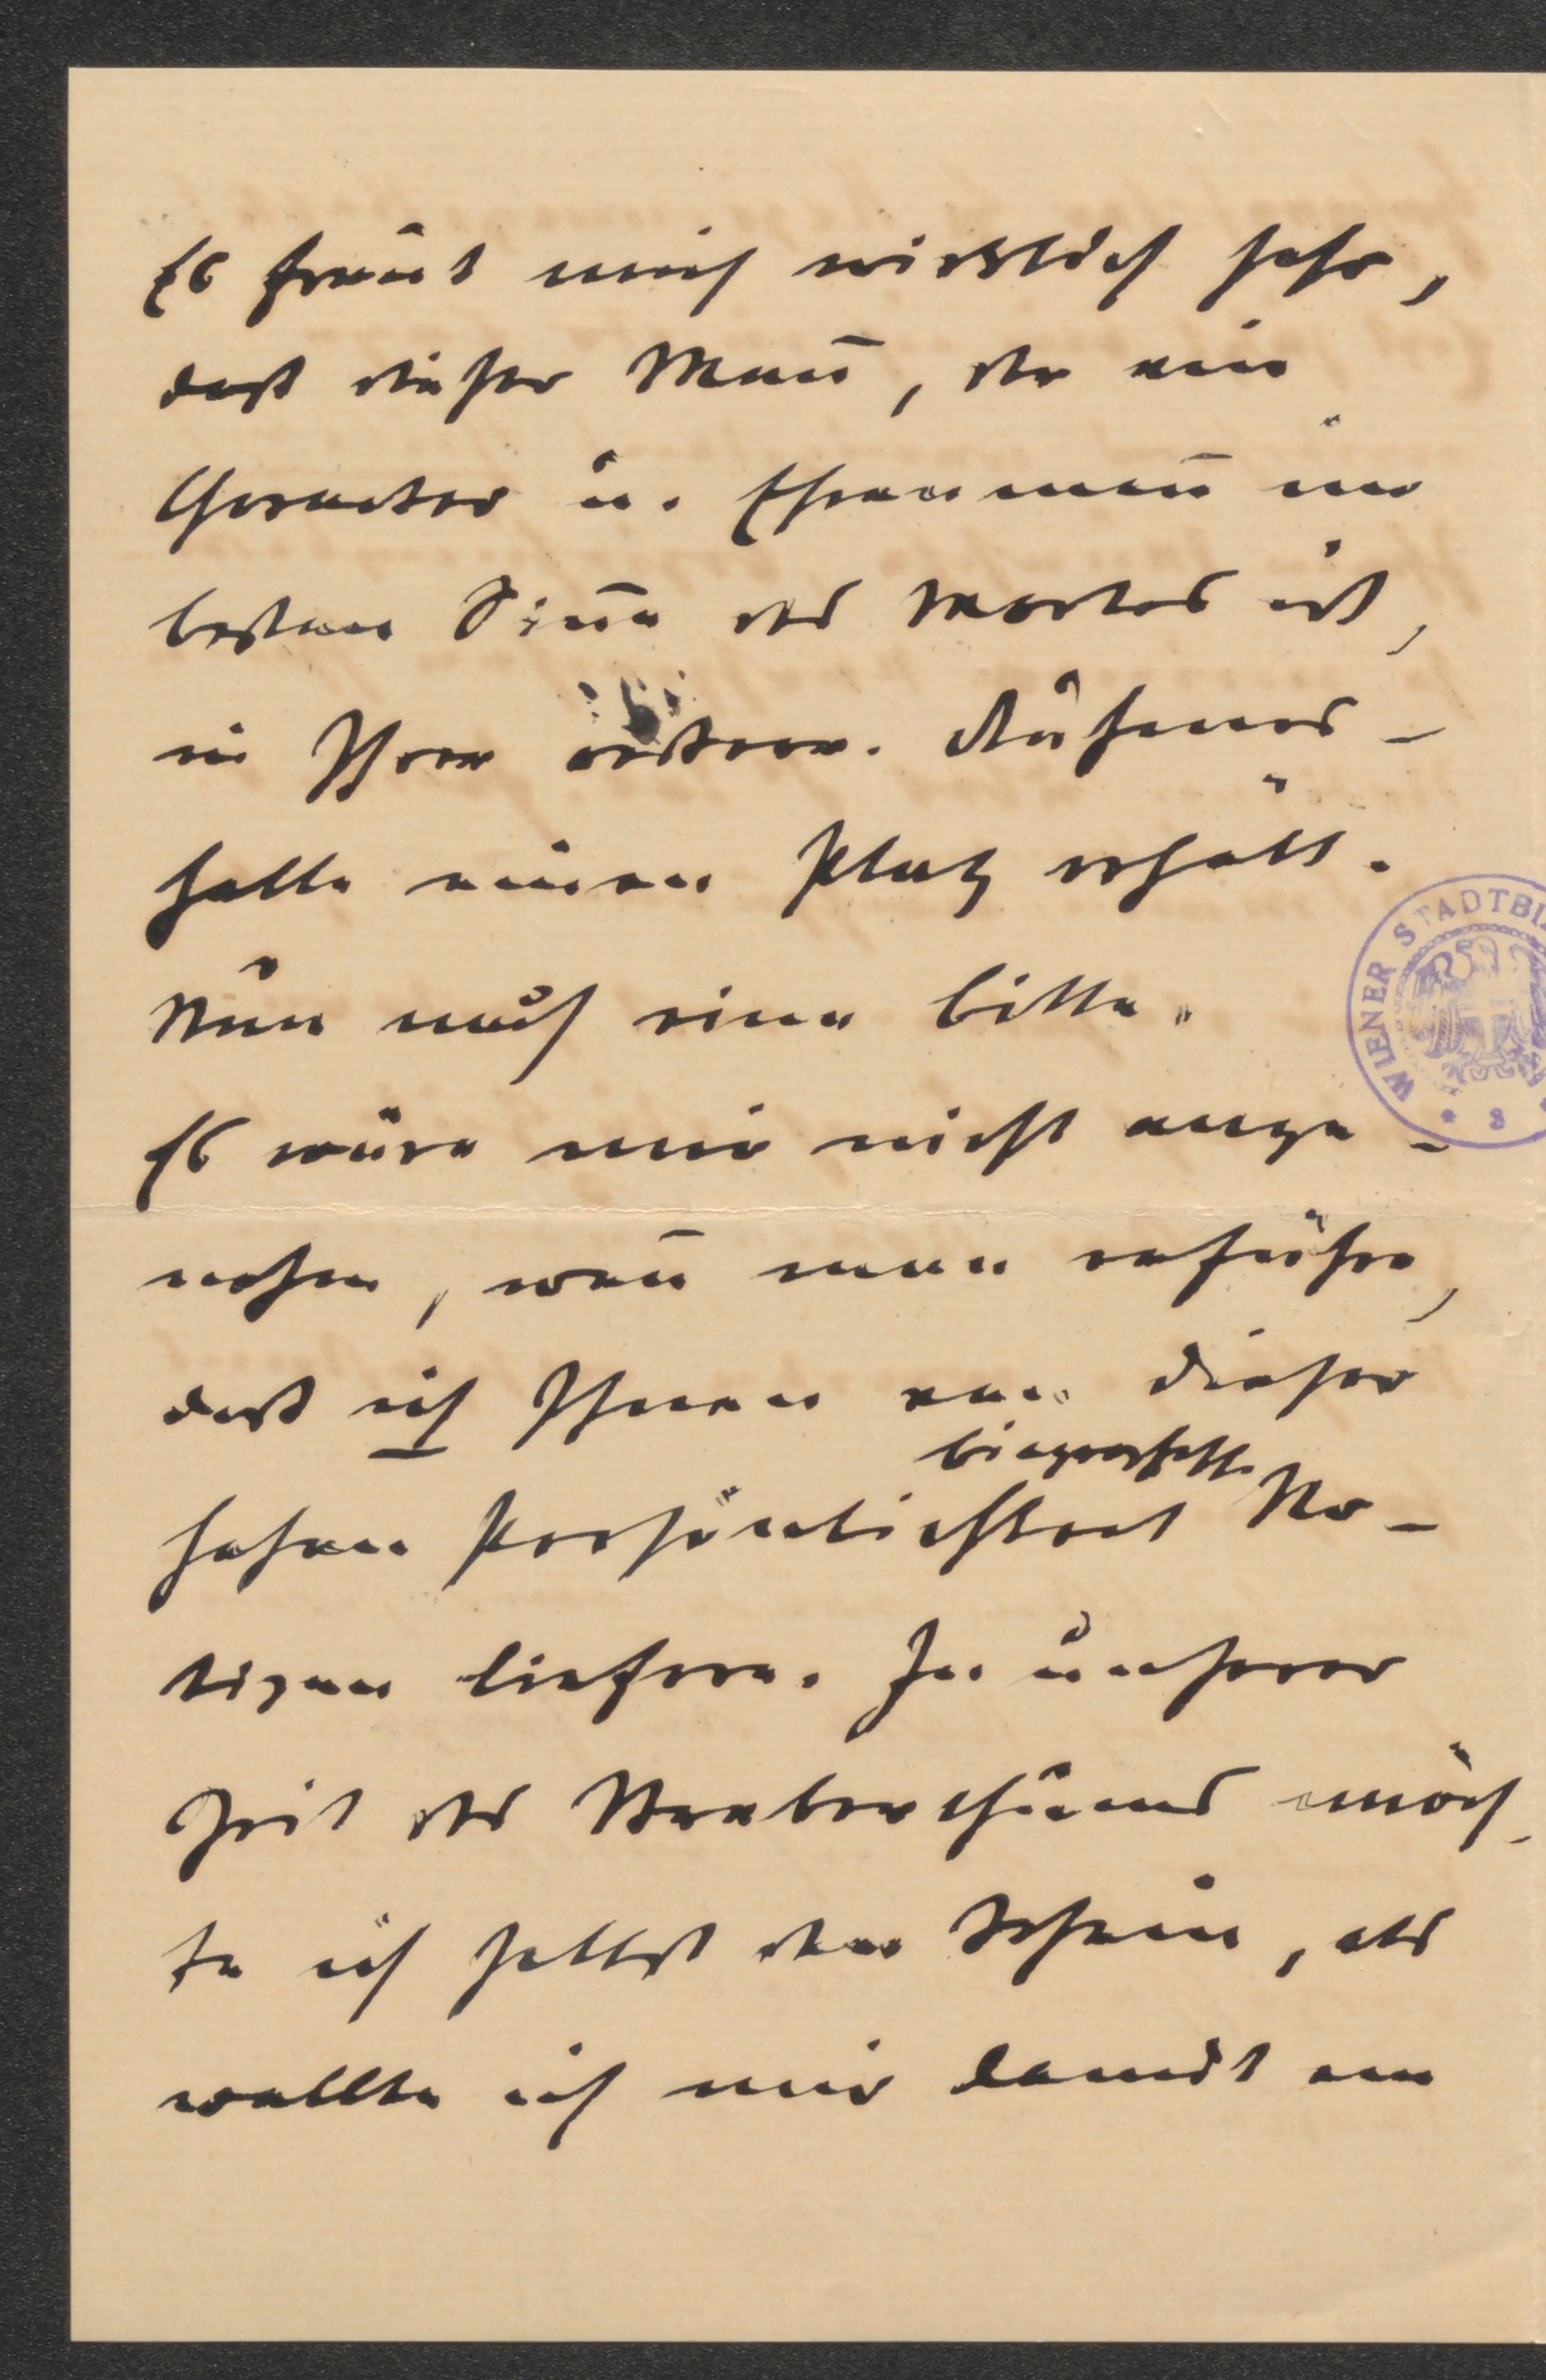 Es freut mich wirklich sehr,
daß dieser Mann, der ein
Character u. Ehrenmann im
besten Sinne des Wortes ist,
in Ihrer österr. Ruhmes-
halle einen Platz erhält.
Nun noch eine Bitte.
Es wäre mir nicht ange-
nehm, wenn man erführe,
daß ich Ihnen von dieser
biographische
hohen Persönlichkeit No-
tizen liefere. In unserer
Zeit des Streberthums möch-
te ich selbst den Schein, als
wollte ich mir damit ein
WIENER STADTBI